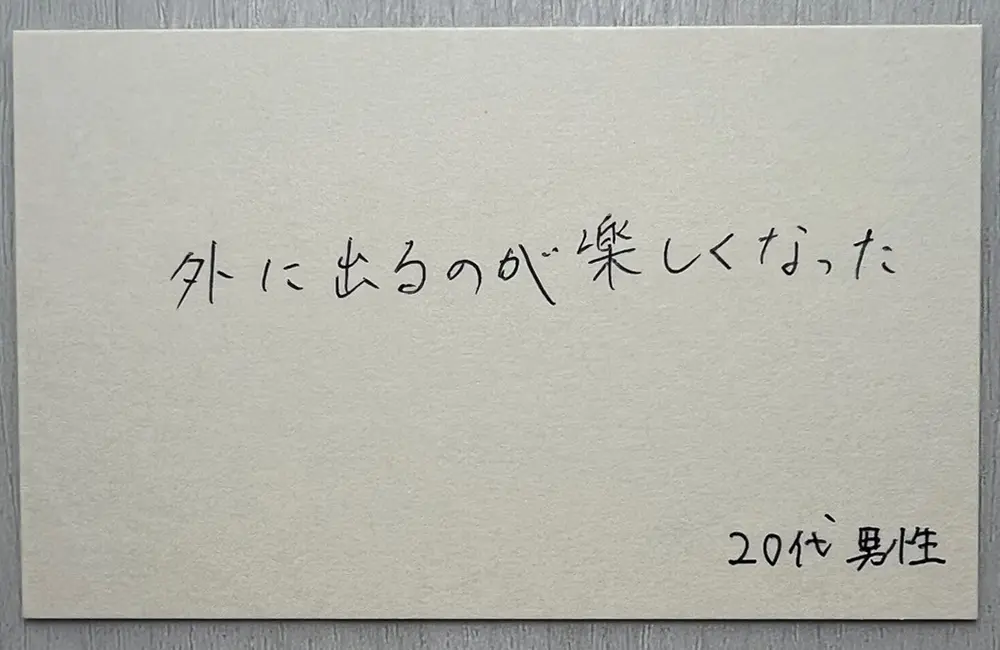 外に出るのが楽しくなった
20代 男性